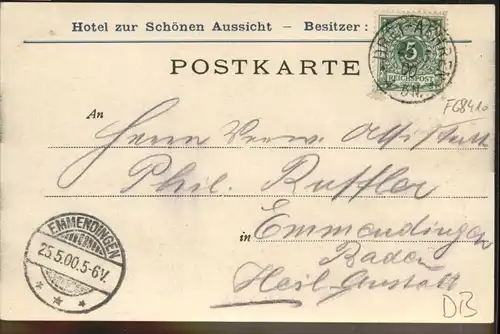 Hotel zur Schönen Aussicht – Besitzer:
DREI-AEHREN
5
REICHSPOST
5 N.
POSTKARTE
F68410
An
Herrn Verw. Assistent
Phil. Ruffler
in Emmendingen
Baden
Heil-Anstalt
EMMENDINGEN
25.5.00.5-6V.
DB